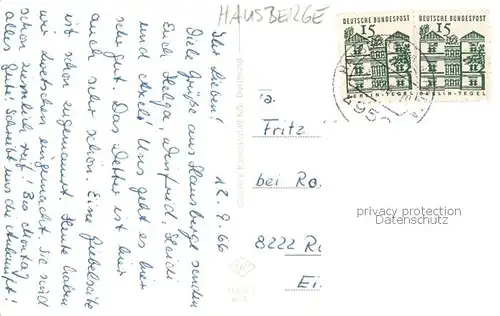 HAUSBERGE
DEUTSCHE BUNDESPOST
15
BERLIN-TEGEL
DEUTSCHE BUNDESPOST
15
BERLIN-TEGEL
495
12.9.66
Ihr Lieben!
Viele Grüße aus Hausberge senden
Euch Helga, Winfried, Heidi
und Axel! Uns geht es hier
sehr gut. Das Wetter ist hier
auch sehr schön. Eine Giebelseite
ist schon zugemauert. Heute haben
wir Zwetschen eingemacht. Sie sind
schon ziemlich reif! Bis Montag
alles Gute! Schreibt uns die Ankunft!
Fa.
Fritz
bei Ro.
8222 Ru
Ei
privacy protection
Datenschutz